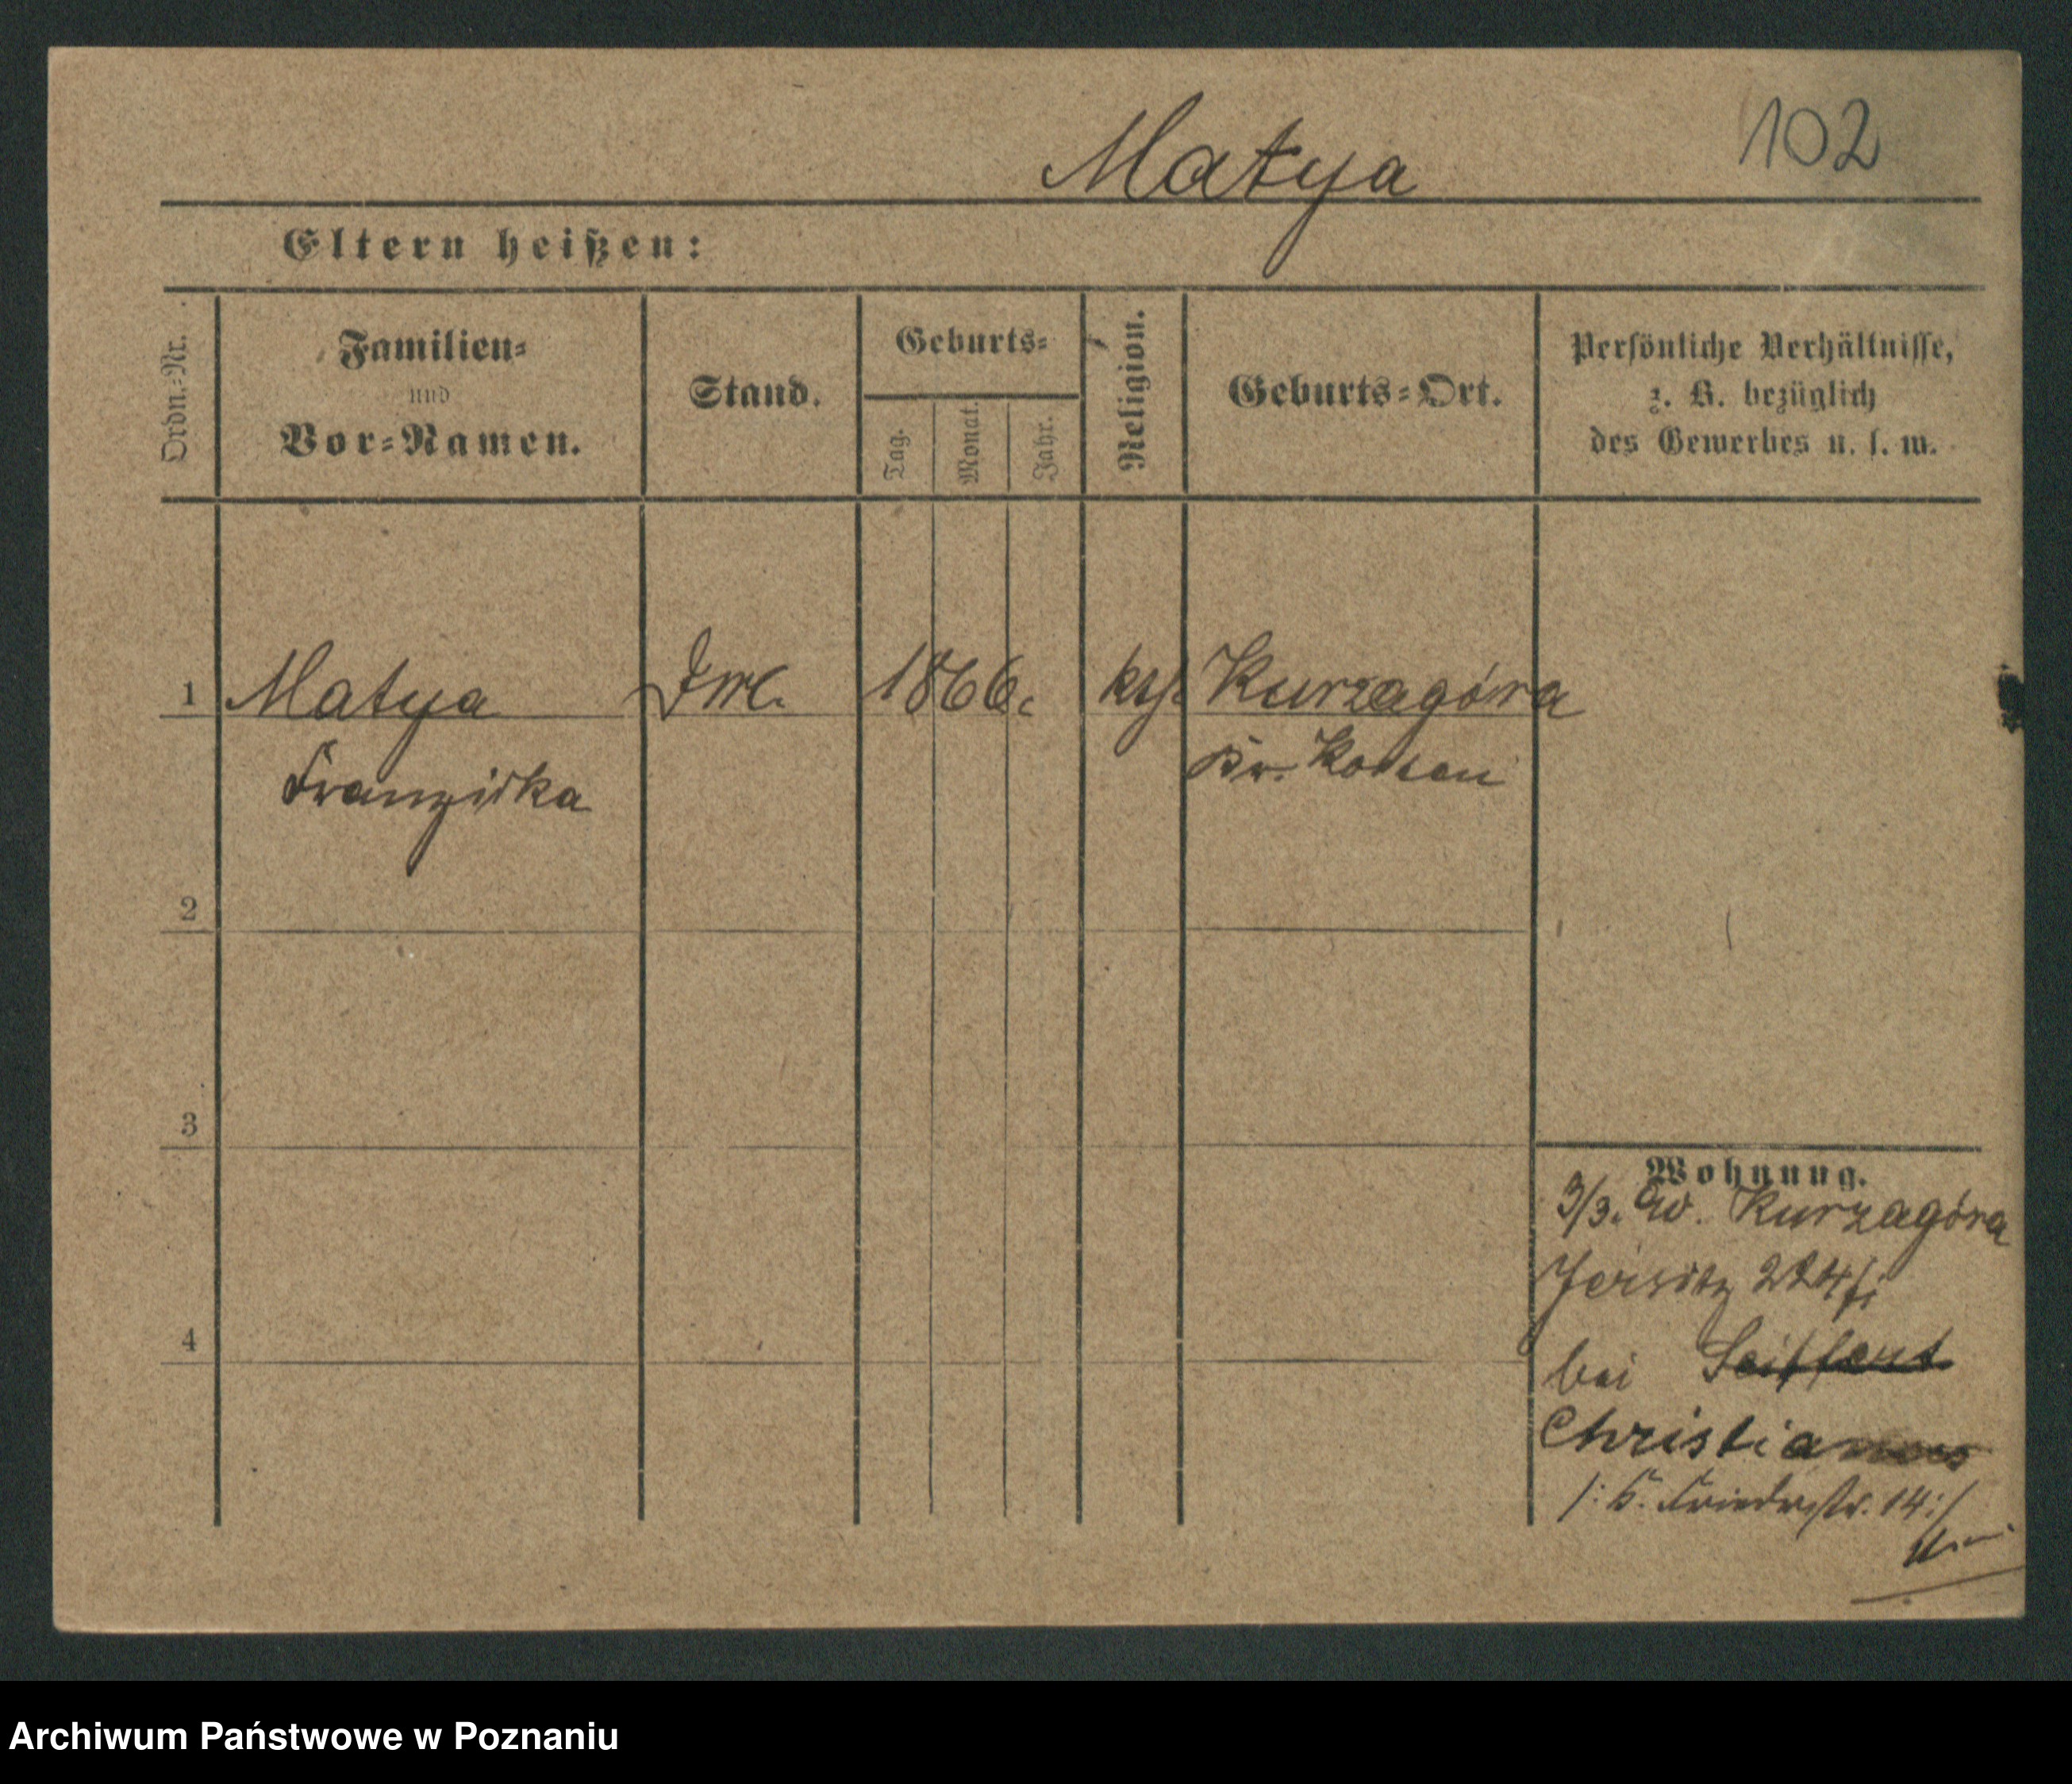 Matya 102
Eltern heißen:
Ordn.-Nr. Familien- und Vor-Namen. Stand. Geburts- Tag. Monat. Jahr. Religion. Geburts-Ort. Persönliche Verhältnisse, z. B. bezüglich des Gewerbes u. s. w.
1 Matya 1866. kth. Kurzagóra
Franziska Kr. Kosten
2
3
Wohnung.
3/3. Kurzagóra
Jersitz 224
4
bei Seiffert
/: Friedrstr. 14 :/
Archiwum Państwowe w Poznaniu